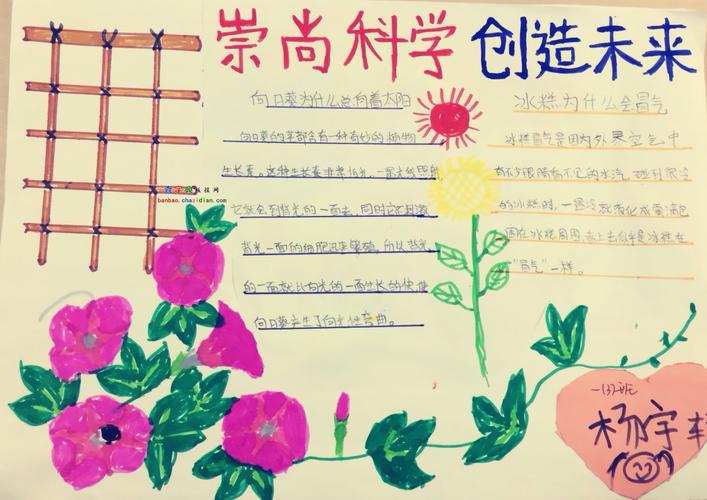 崇尚科学 创造未来
向日葵为什么总向着太阳
向日葵的茎部含有一种奇妙的植物
生长素。这种生长素非常怕光。一遇光线照射
它就会到背光的一面去，同时它还刺激
背光一面的细胞迅速繁殖，所以背光
的一面就比向光的一面生长的快，使
向日葵产生了向光性弯曲。
冰糕为什么会冒气
冰糕冒气是因为外界空气中
有不少眼睛看不见的水汽，碰到很冷
的冰糕时，一遇冷就液化成雾滴包
围在冰糕周围，看上去似乎是冰糕在
"冒气"一样。
banbao.chazidian.com
一(3)班
杨宇